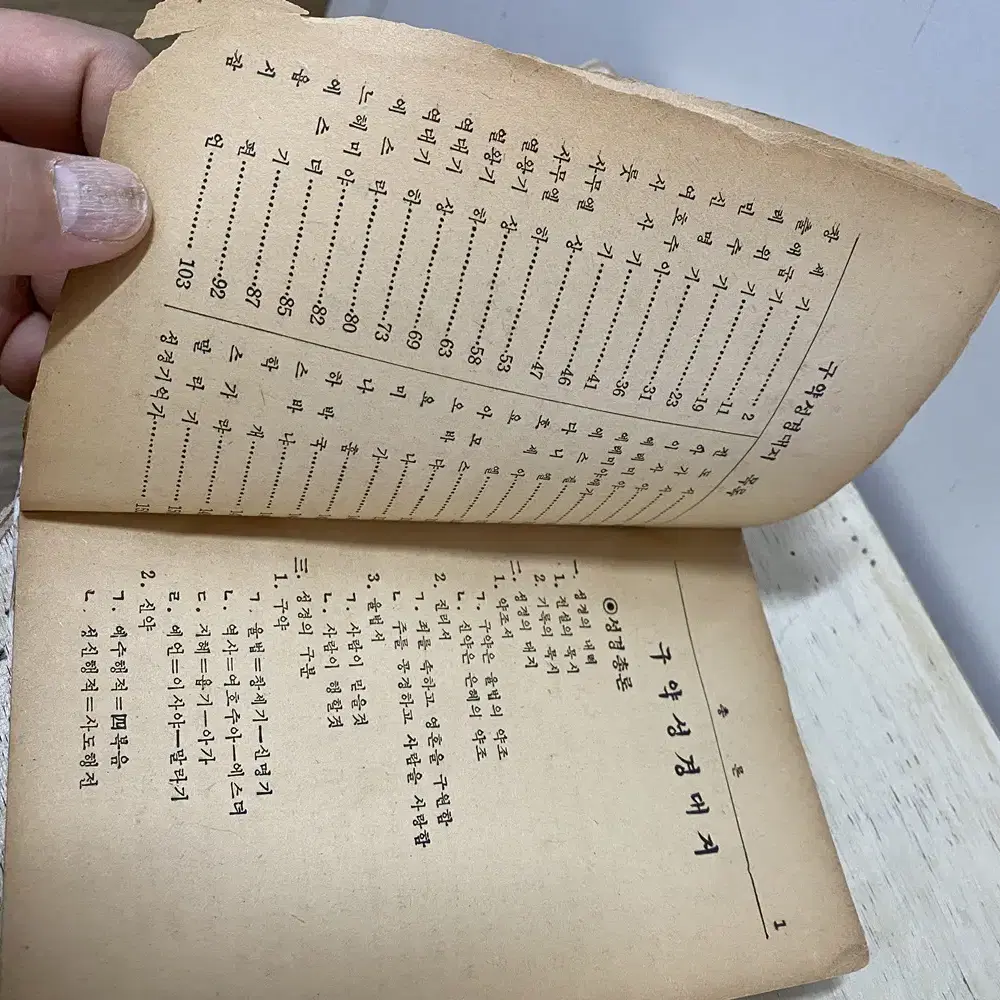 구약성경대지 목록
창세기 2
출애굽기 11
레위기 19
민수기 23
신명기 31
여호수아 36
사사기 41
룻기 46
사무엘상 47
사무엘하 53
열왕기상 58
열왕기하 63
역대기상 69
역대기하 73
에스라 80
느헤미야 82
에스더 85
욥기 87
시편 92
잠언 103
전도서
아가
이사야
예레미야
예레미야애가
에스겔
다니엘
호세아
요엘
아모스
오바댜
요나
미가
나훔
하박국
스바냐
학개
스가랴
말라기
총론 1
구약성경대지
◉성경총론
一. 성경의 내력
1. 전설의 묵시
2. 기록의 묵시
二. 성경의 대지
1. 약조서
ㄱ. 구약은 율법의 약조
ㄴ. 신약은 은혜의 약조
2. 진리서
ㄱ. 죄를 속하고 영혼을 구원함
ㄴ. 주를 공경하고 사람을 사랑함
3. 율법서
ㄱ. 사람이 믿을것
ㄴ. 사람이 행할것
三. 성경의 구분
1. 구약
ㄱ. 율법=창세기—신명기
ㄴ. 역사=여호수아—에스더
ㄷ. 지혜=욥기—아가
ㄹ. 예언=이사야—말라기
2. 신약
ㄱ. 예수행적=四복음
ㄴ. 성신행적=사도행전